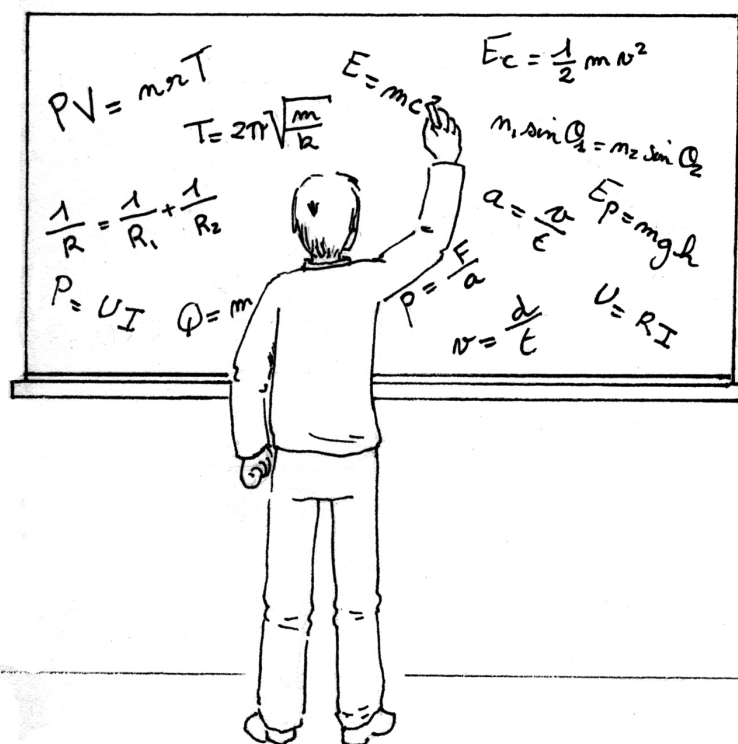 PV = nrT
T = 2π√(m/k)
E = mc²
Ec = 1/2 mv²
n₁ sin θ₁ = n₂ sin θ₂
1/R = 1/R₁ + 1/R₂
a = v/t
Ep = mgh
P = UI
Q = m
P = F/a
v = d/t
U = RI